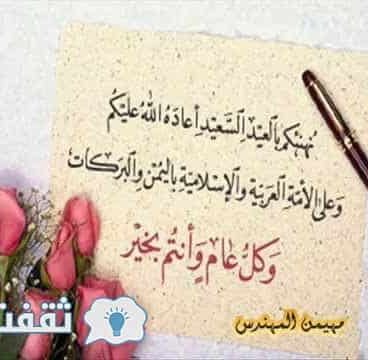 نُهَنِّئُكُم بِالعِيْدِ السَّعِيْدِ أعَادَهُ اللهُ عَلَيْكُم
وَعَلىٰ الأُمَّةِ العَرَبِيَّة وَالإِسْلَامِيَّة بِاليُمْنِ وَالبَرَكَات
وَكُلُّ عَام وَأَنتُم بِخَيْر
مهيمن المهندس
ثقفن